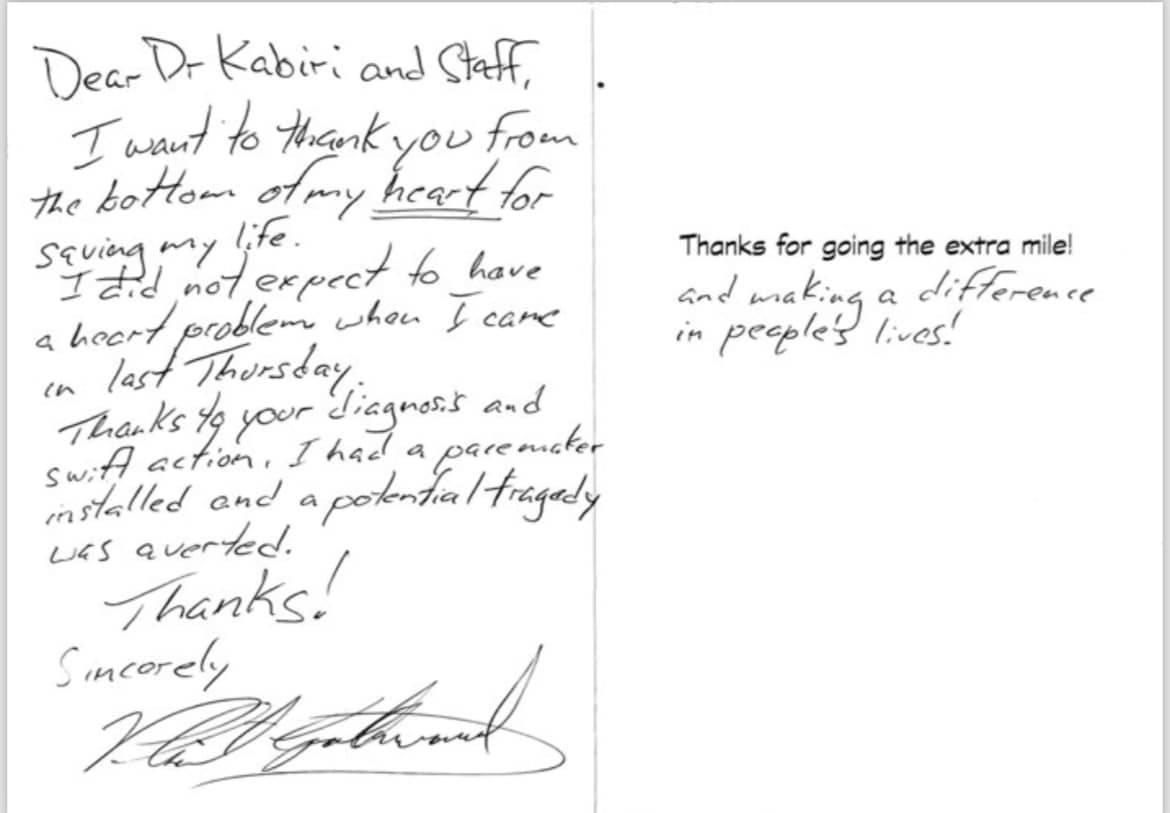 Dear Dr Kabiri and Staff,
I want to thank you from
the bottom of my heart for
saving my life.
I did not expect to have
a heart problem when I came
in last Thursday.
Thanks to your diagnosis and
swift action, I had a pacemaker
installed and a potential tragedy
was averted.
Thanks!
Sincerely
Thanks for going the extra mile!
and making a difference
in people's lives!